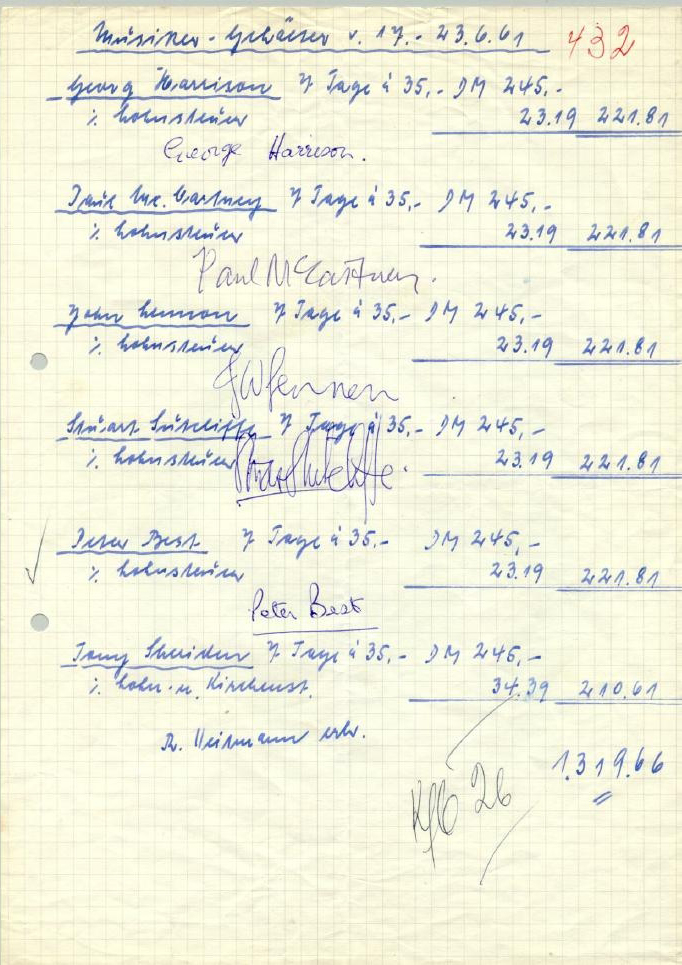 Musiker-Gehälter v. 17.-23.6.61 432
Georg Harrison 7 Tage à 35,- DM 245,-
% Lohnsteuer 23.19 221.81
George Harrison.
Paul Mc. Cartney 7 Tage à 35,- DM 245,-
% Lohnsteuer 23.19 221.81
Paul McCartney.
John Lennon 7 Tage à 35,- DM 245,-
% Lohnsteuer 23.19 221.81
JW Lennon
Stuart Sutcliffe 7 Tage à 35,- DM 245,-
% Lohnsteuer 23.19 221.81
Stuart Sutcliffe.
Peter Best 7 Tage à 35.- DM 245,-
% Lohnsteuer 23.19 221.81
Peter Best
Tony Sheriden 7 Tage à 35,- DM 245,-
% Lohn- u. Kirchenst. 34.39 210.61
erh.
1.319.66
26